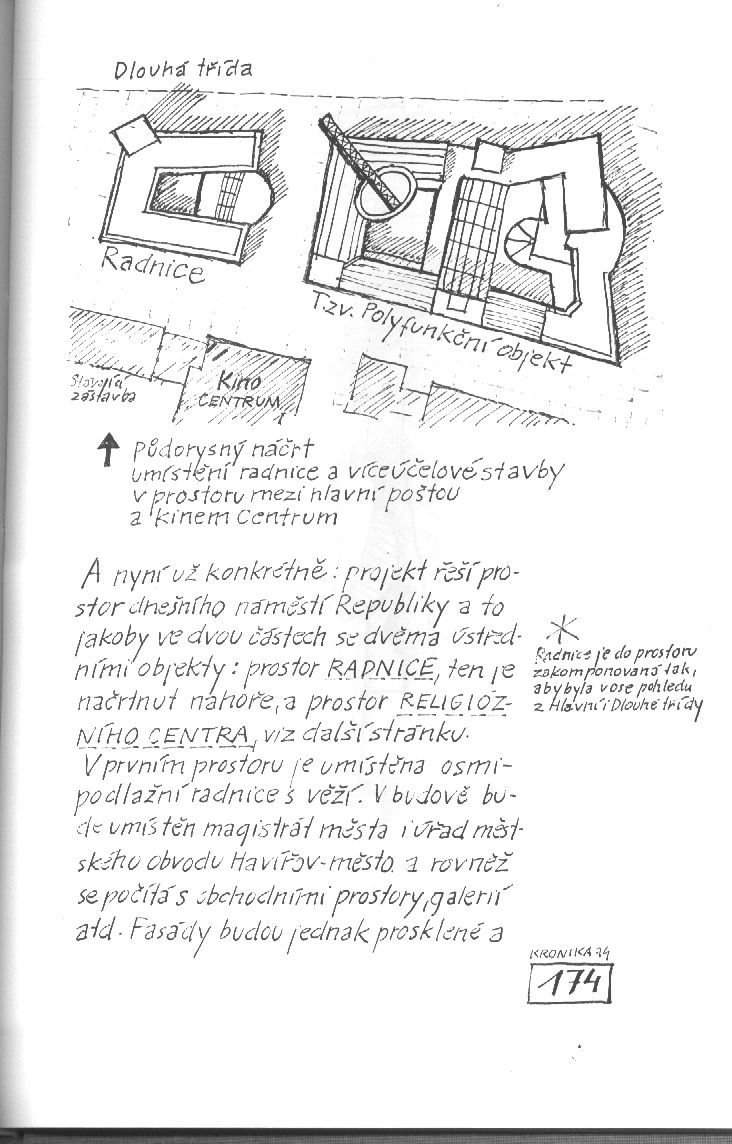 Dlouhá třída
Radnice
Tzv. Polyfunkční objekt
zástavba
Kino
CENTRUM
Půdorysný náčrt
umístění radnice a víceúčelové stavby
v prostoru mezi hlavní poštou
a kinem Centrum
A nyní už konkrétně: projekt řeší pro-
stor dnešního náměstí Republiky a to
jakoby ve dvou částech se dvěma ústřed-
ními objekty: prostor RADNICE, ten je
načrtnut nahoře, a prostor RELIGIÓZ-
NÍHO CENTRA, viz další stránku.
V prvním prostoru je umístěna osmi-
podlažní radnice s věží. V budově bu-
de umístěn magistrát města i úřad měst-
ského obvodu Havířov-město a rovněž
se počítá s obchodními prostory, galerií
atd. Fasády budou jednak prosklené a
Radnice je do prostoru
zakomponovaná tak,
aby byla v ose pohledu
z Hlavní i Dlouhé třídy
KRONIKA 94
174